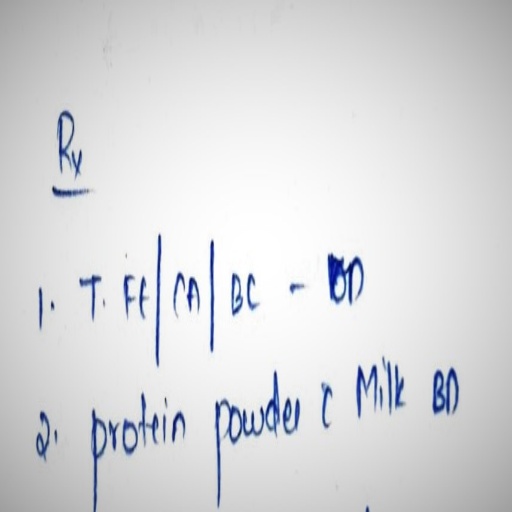 Rx
1. T. FE | CA | BC - OD
2. protein powder c Milk BD